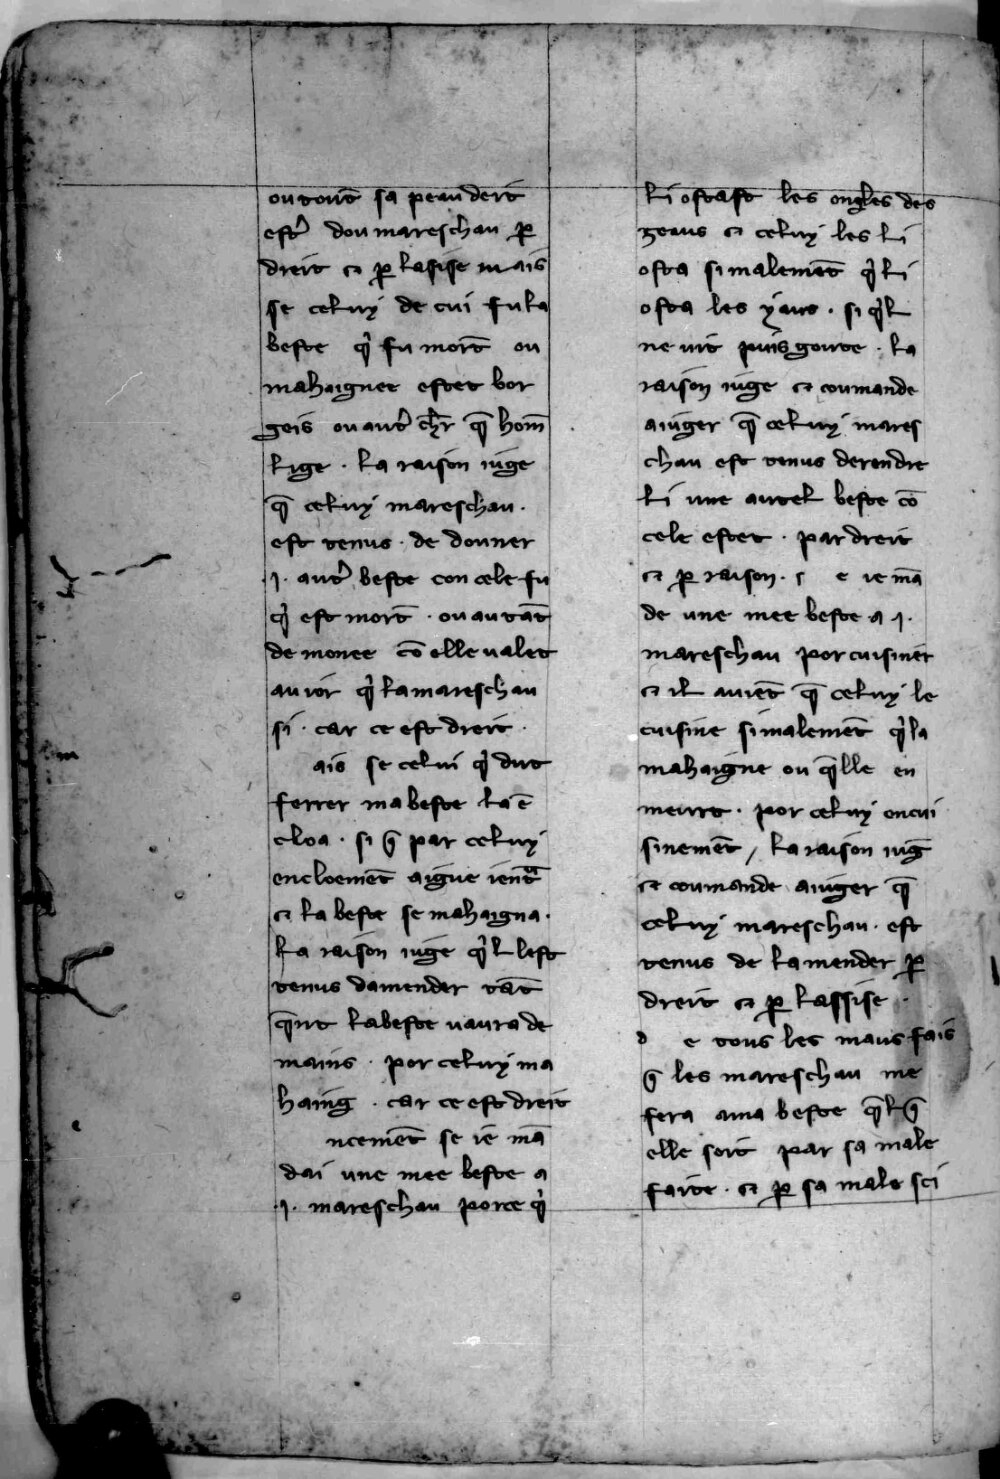 ou tout̄ sa peau deit
estr̾ dou mareschau ꝑ
dreit ⁊ ꝑ lasise mais
se celuy de cui fu la
beste q̾ fu mort̄ ou
mahaignee estet bor
geis ou autr̾ chr̄ q̄ hom̄
lige . la raison iuge
q̄ celuy mareschau .
est tenus . de donner
.ı. autr̾ beste con cele fu
q̾ est mort̄ . ou autāt
de monee cō elle valet
au ior q̾ la mareschau
si . car ce est dreit .
ais se celui q̾ dut
ferrer ma beste la ē
cloa . si q̄ par celuy
encloemēt aigue ient̾
⁊ la beste se mahaigna .
la raison iuge q̾l lest
tenus damender tāt
q̄nt la beste vaura de
mains . por celuy ma
haing . car ce est dreit
ncemēt se ie mā
dai une mee beste a
.ı. mareschau por ce q̾
li ostast les ongles des
zeaus ⁊ celuy les li
osta si malemēt q̾ li
osta les yaus . si q̾l
ne vit puis goute . la
raison iuge ⁊ coumande
a iuger q̄ celuy mares
chau est tenus de rendre
li une autel beste cō
cele estet . par dreit
⁊ ꝑ raison . e ie mā
de une mee beste a .ı.
mareschau por cuisiner
⁊ il auiēt q̄ celuy le
cuisine si malemēt q̾ la
mahaigne ou q̄lle en
meurt . por celuy encui
sinemēt / la raison iuḡ
⁊ coumande a iuger q̄
celuy mareschau . est
tenus de lamender ꝑ
dreit ⁊ ꝑ lassise .
d e tous les maus fais
q̄ les mareschau me
fera a ma beste q̄l q̄
elle soit par sa male
faite . ⁊ ꝑ sa male sci
m
e